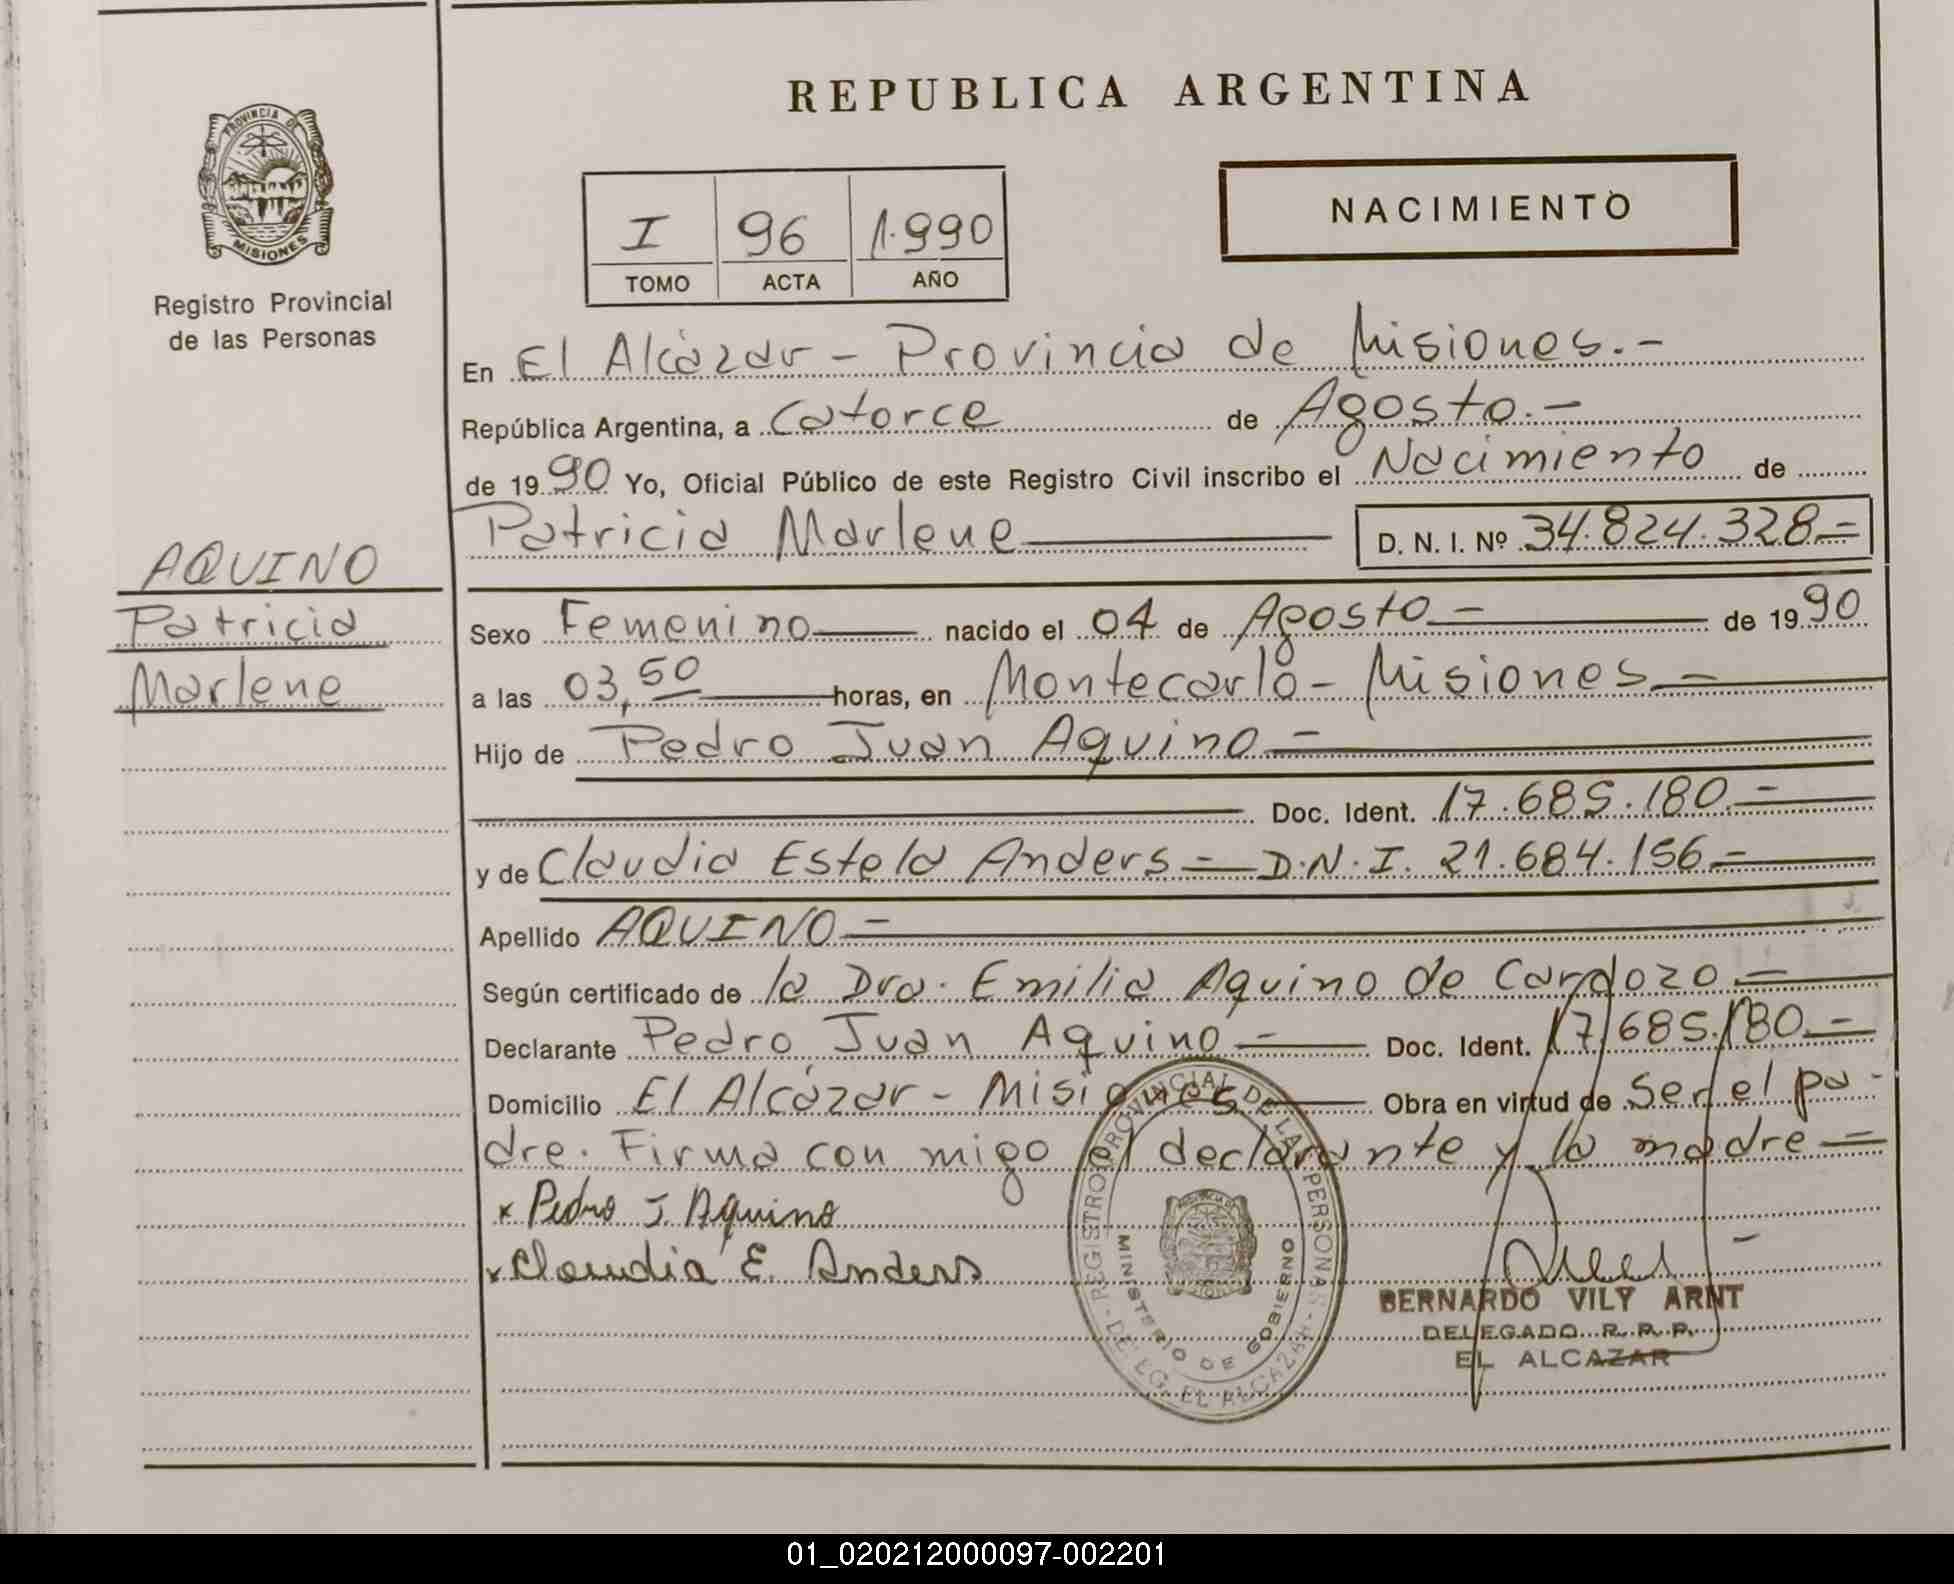 REPUBLICA ARGENTINA
PROVINCIA DE
MISIONES
Registro Provincial
de las Personas
NACIMIENTO
I 96 1.990
TOMO ACTA AÑO
En El Alcázar - Provincia de Misiones.-
República Argentina, a Catorce de Agosto.-
de 1990 Yo, Oficial Público de este Registro Civil inscribo el Nacimiento de
Patricia Marlene D. N. I. Nº 34.824.328=
AQUINO
Patricia
Marlene
Sexo Femenino nacido el 04 de Agosto - de 1990
a las 03,50 horas, en Montecarlo - Misiones -
Hijo de Pedro Juan Aquino -
Doc. Ident. 17.685.180.-
y de Claudia Estela Anders = D.N.I. 21.684.156 =
Apellido AQUINO -
Según certificado de la Dra. Emilia Aquino de Cardozo =
Declarante Pedro Juan Aquino - Doc. Ident. 17.685.180.-
Domicilio El Alcázar - Misiones Obra en virtud de Ser el pa-
dre. Firma con migo el declarante y la madre =
x Pedro J. Aquino
x Claudia E. Anders
REGISTRO PROVINCIAL DE LAS PERSONAS - DELEG. EL ALCAZAR -
MINISTERIO DE GOBIERNO
BERNARDO VILY ARNT
DELEGADO R. P. P.
EL ALCAZAR
01_020212000097-002201